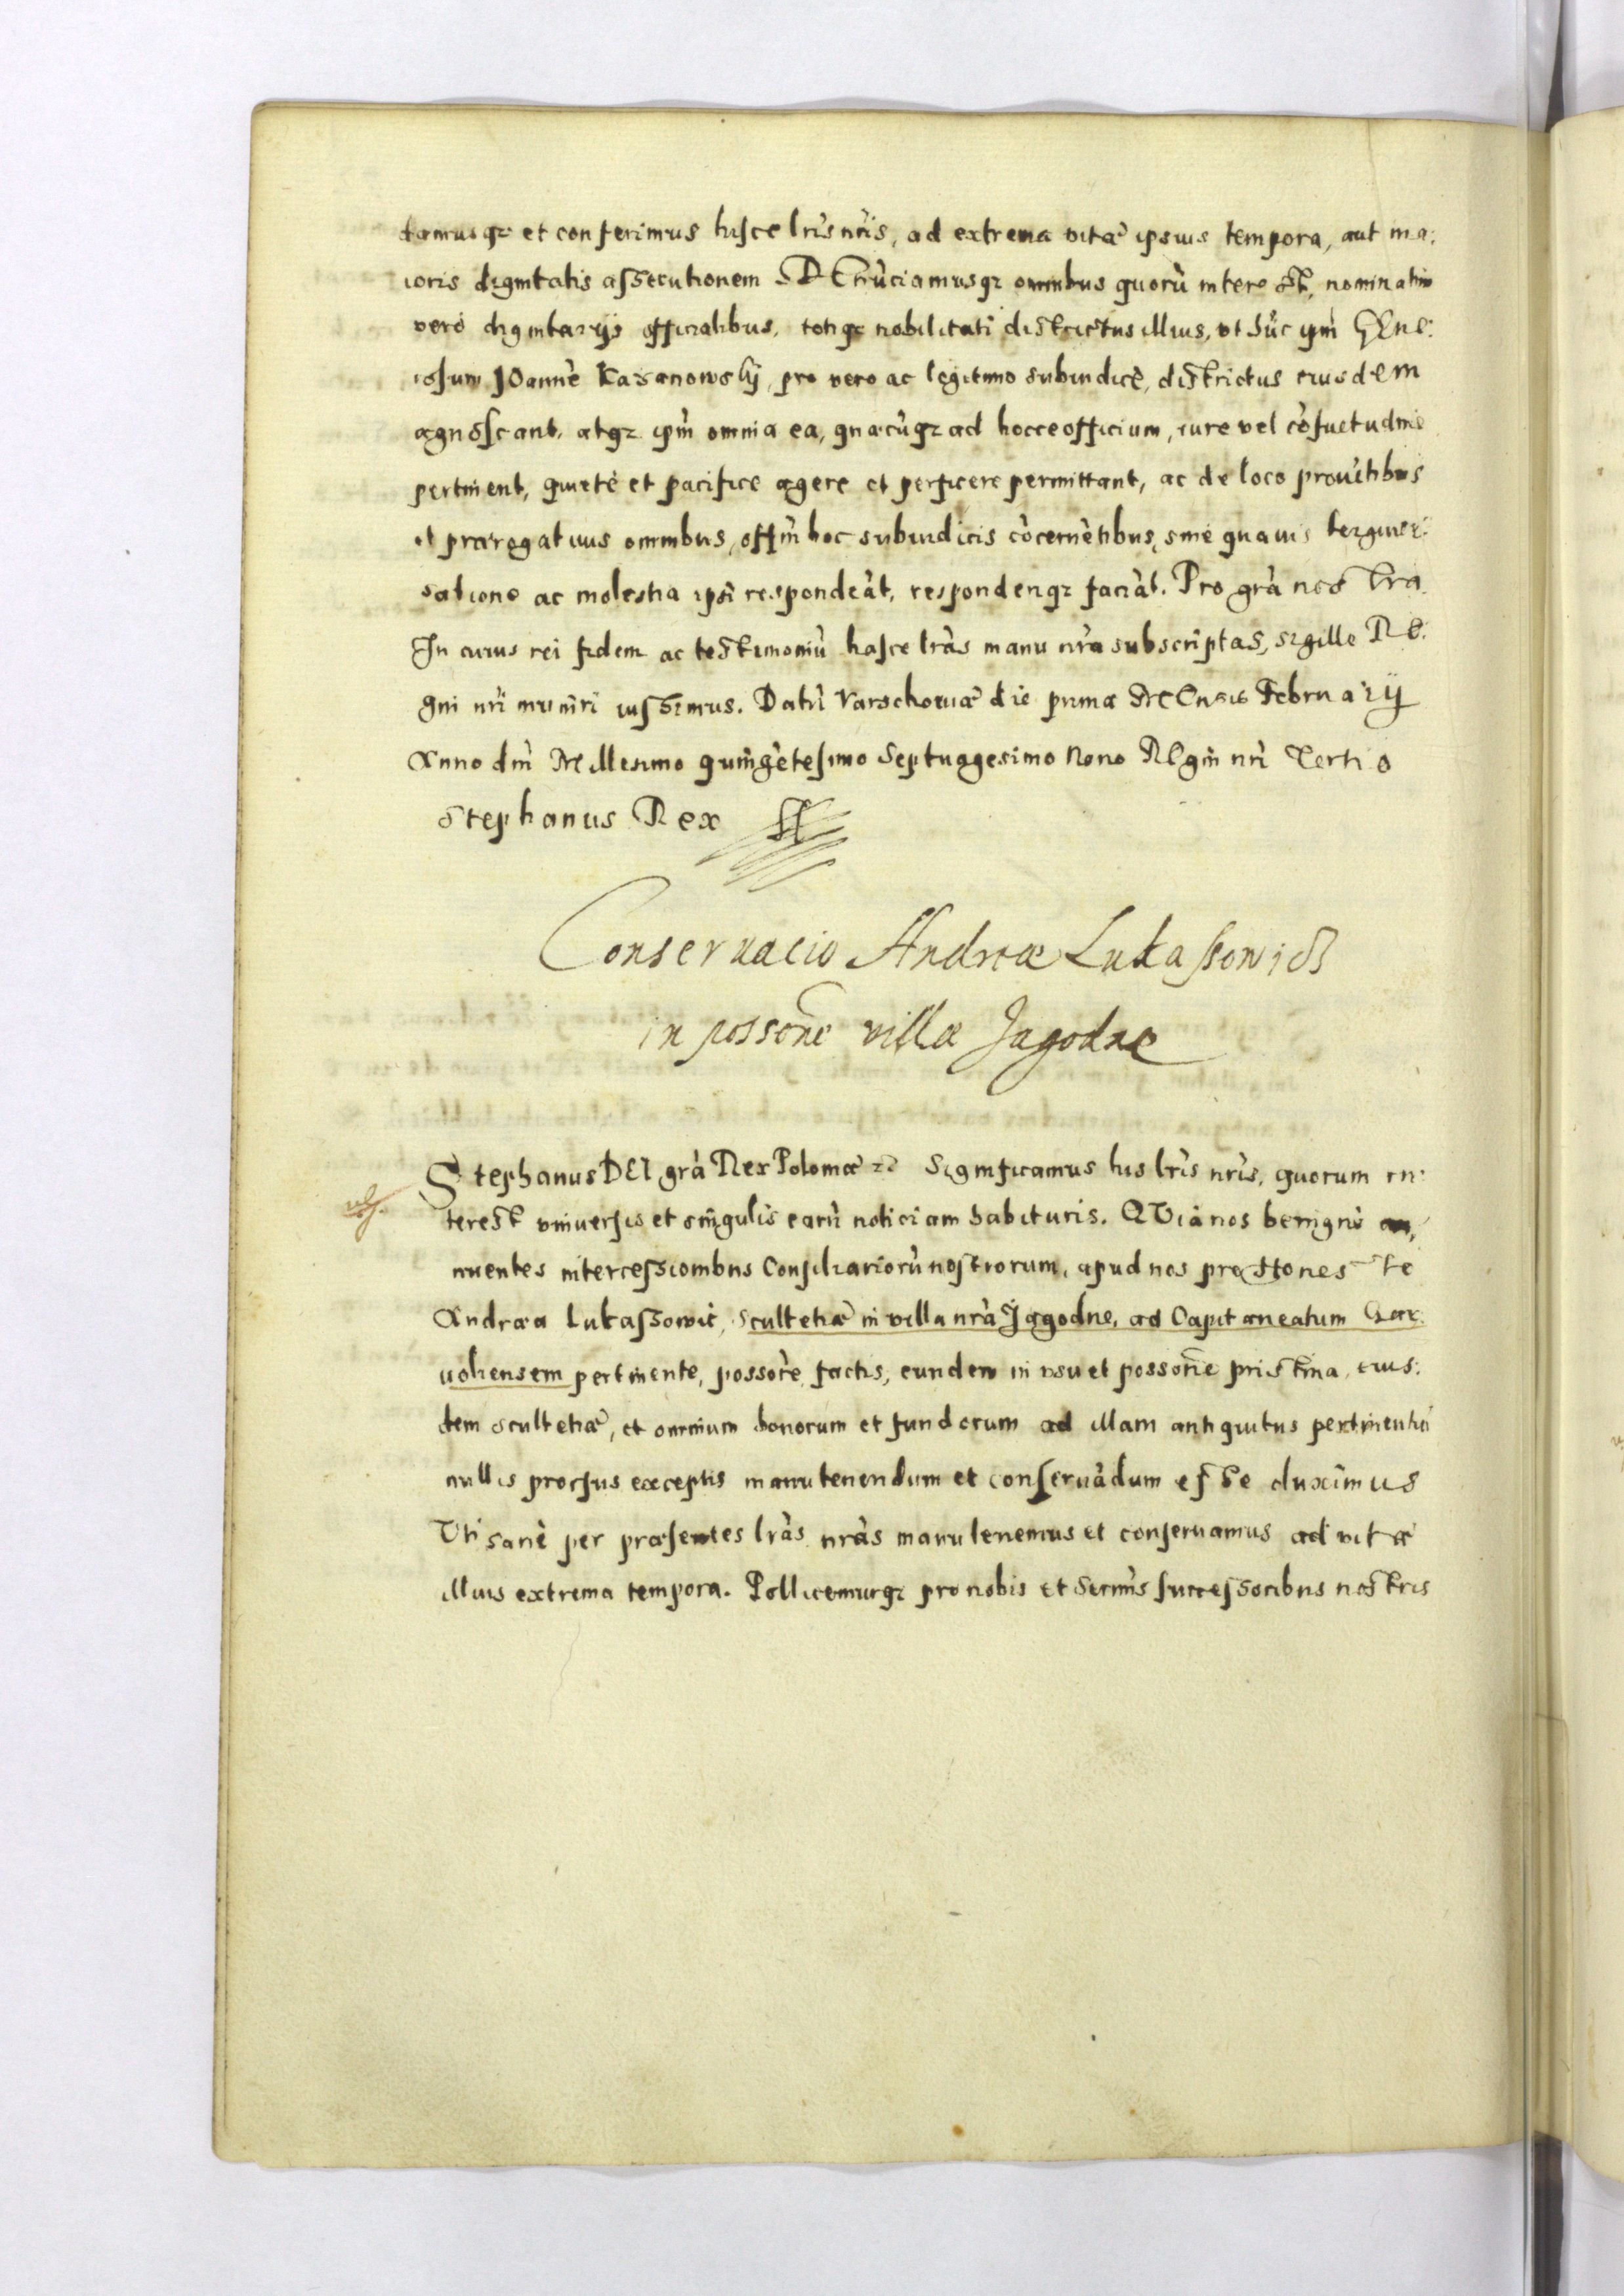 damusqȝ et conferimus hisce lris nris, ad extrema vitæ ipsius tempora, aut ma:
ioris dignitatis assecutionem DEnūciamusqȝ omnibus quorū interest, nominatim
vero dignitarijs officialibus, totiqȝ nobilitati districtus illius, vt hūc ipm GEne:
rosum JOannē Kazanowskij, pro vero ac legitimo subiudicē, districtus eiusdem
agnoscant, atqȝ ipm omnia ea, quæcūqȝ ad hocce officium, iure vel cōsuetudine
pertinent, quiete et pacifice agere et perficere permittant, ac de loco prouētibus
et prærogatiuis omnibus, offm hoc subiudicis cōcernētibus, sine quauis tergiuer:
satione ac molestia ipsi respondeāt, responderiqȝ faciāt. Pro grā nostra.
In cuius rei fidem ac testimoniū hasce lrās manu nra subscriptas, sigillo RE:
gni nri muniri iussimus. Datū Varschouiæ die prima MEnsis Februarij
Anno dni Millesimo quingētesimo Septuagesimo Nono REgni nri Tertio
Stephanus Rex
Conseruacio Andreæ Lukassowicz
in possone villæ Jagodne
Stephanus DEI grā Rex Poloniæ Significamus his lris nris, quorum in:
terest vniuersis et singulis earū noticiam habituris. QVia nos benigne an,
nuentes intercessionibus Consiliariorū nostrorum, apud nos pro Honeste
Andræa Lukassowic, Scultetiæ in villa nrā Jagodne, ad Capitaneatum Gar:
uoliensem pertinente, possore factis, eundem in vsu et possone pristina, eius:
dem scultetiæ, et omnium bonorum et fundorum ad illam antiquitus pertinentiū
nullis prorsus exceptis manutenendum et conseruādum esse duximus
Vti sane per præsentes lrās nrās manutenemus et conseruamus ad vitæ
illius extrema tempora. Pollicemurqȝ pro nobis et Sermis successoribus nostris